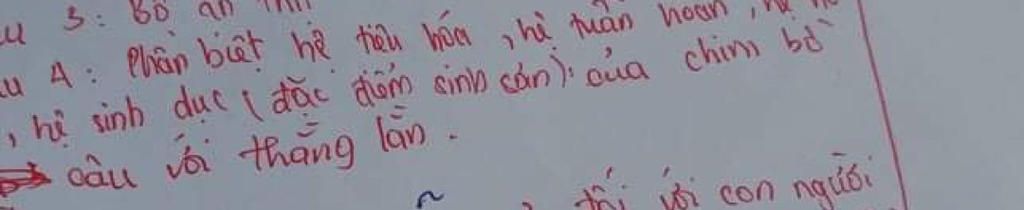 3: Bộ ăn
4: Phân biệt hệ tiêu hóa, hệ tuần hoàn,
, hệ sinh dục (đặc điểm sinh sản): của chim bồ
câu với thằng lằn.
với con người